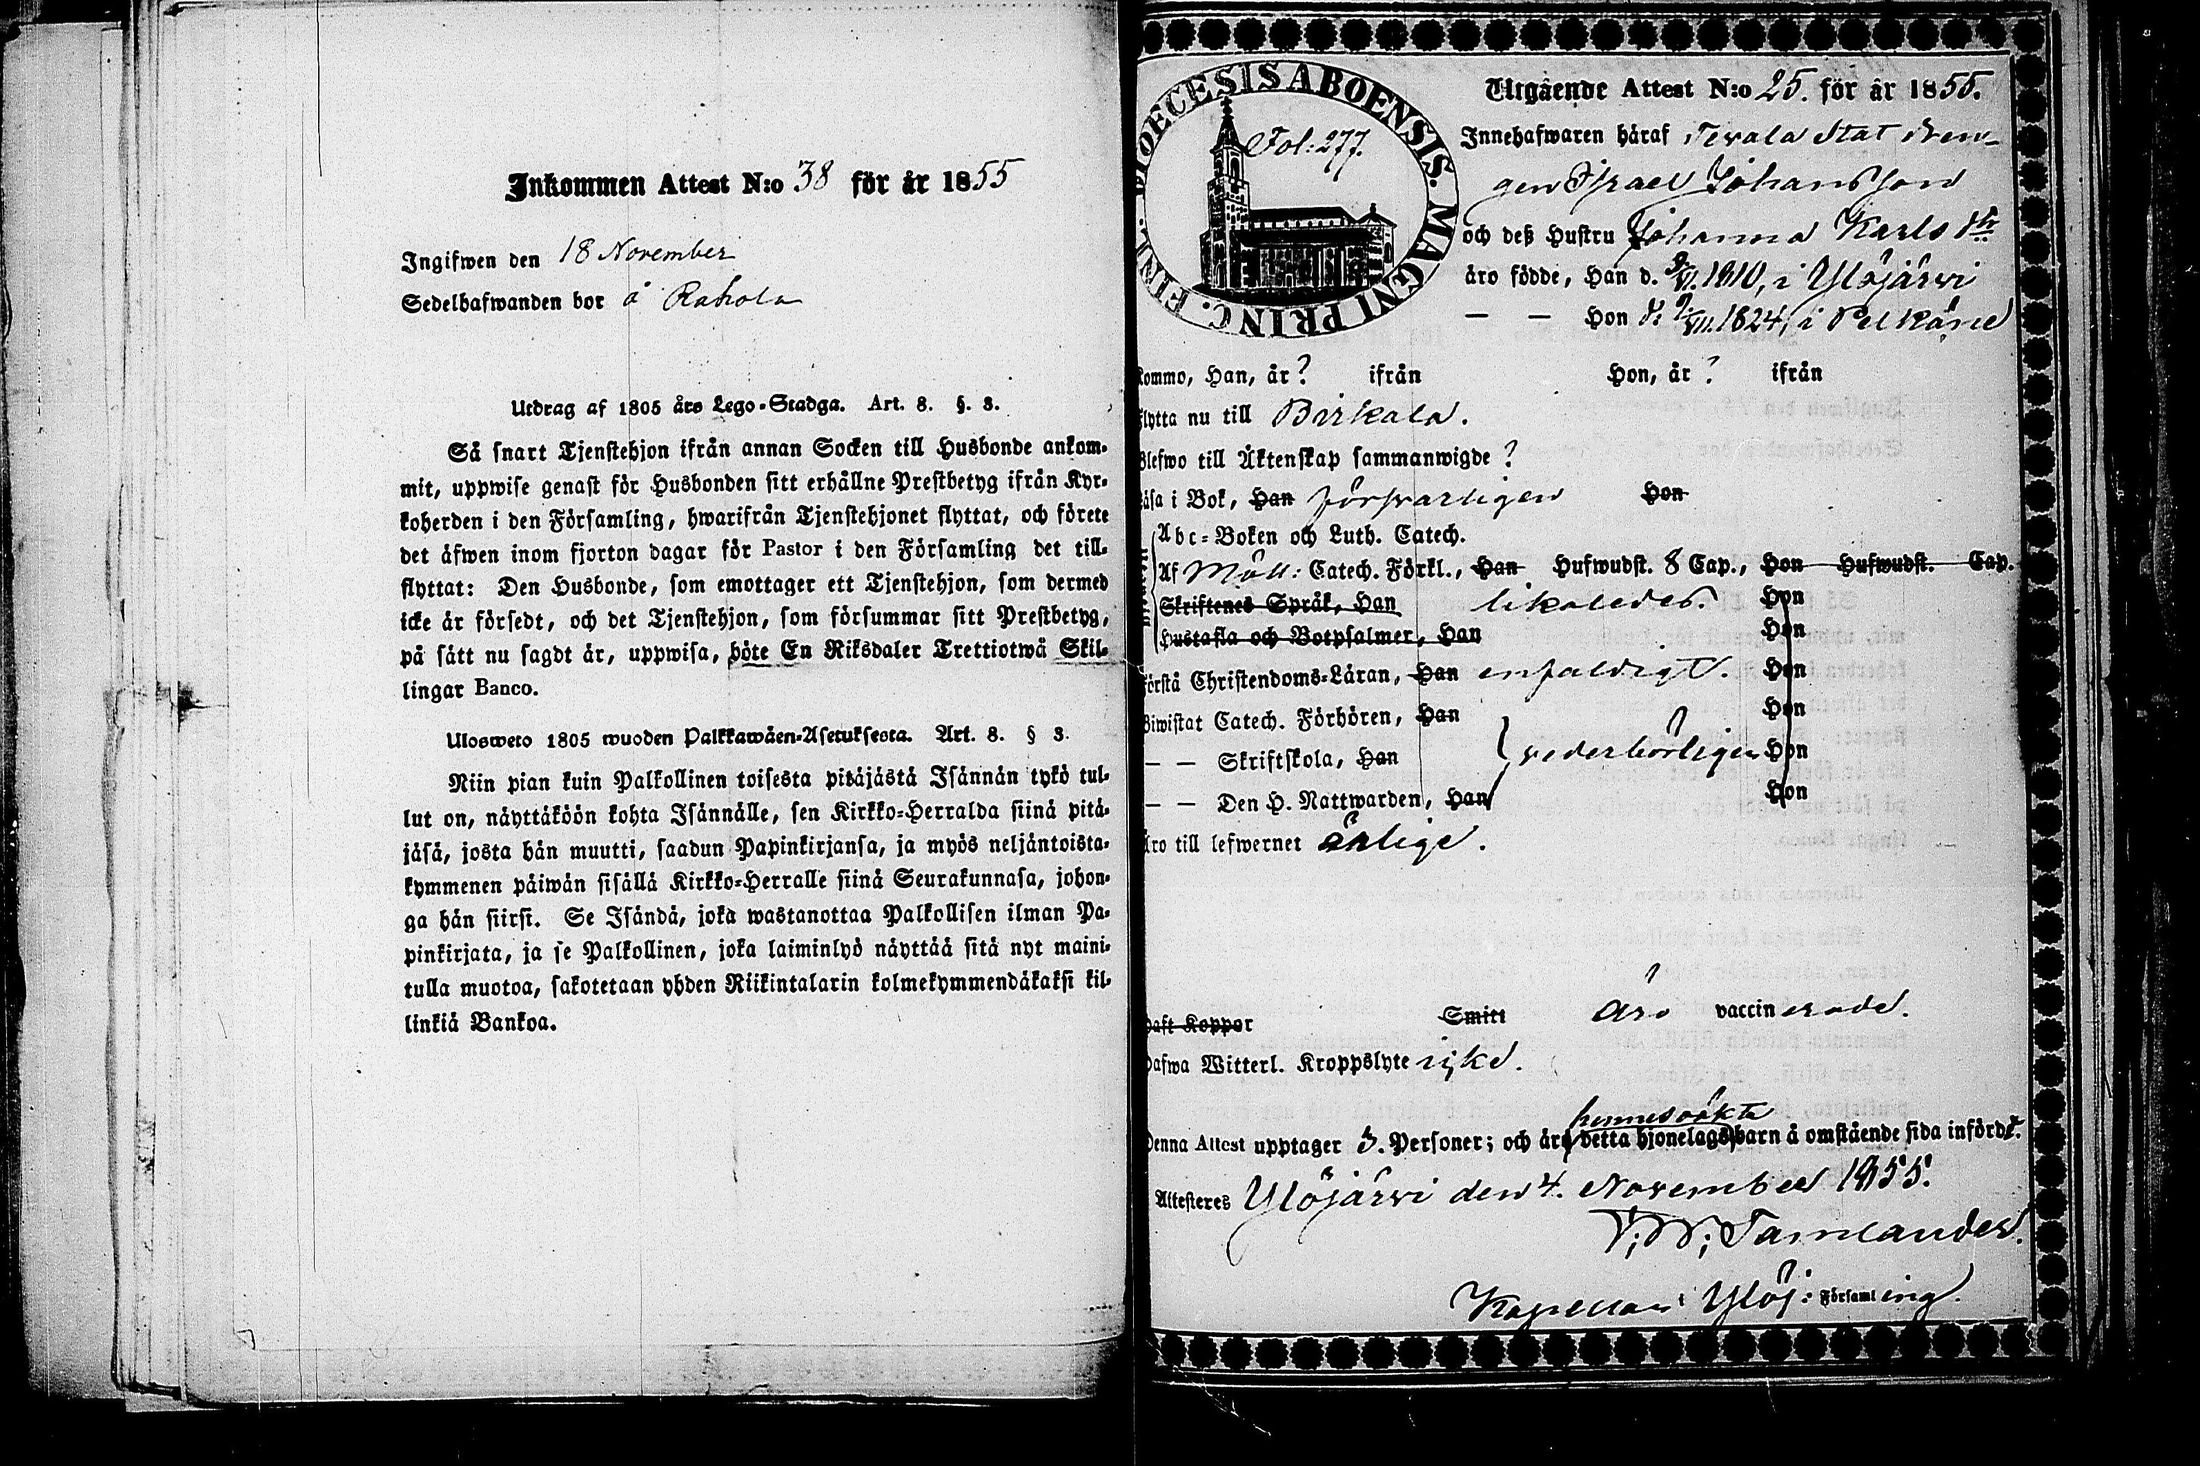 Inkommen Attest N:o 38 för år 1855
Ingifwen den 18 November
Sedelhafwanden bor å Rahola
Utdrag af 1805 års Lego-Stadga. Art. 8. §. 3.
Så snart Tjenstehjon ifrån annan Socken till Husbonde ankom-
mit, uppwise genast för Husbonden sitt erhållne Prestbetyg ifrån Kyr-
koherden i den Församling, hwarifrån Tjenstehjonet flyttat, och förete
det äfwen inom fjorton dagar för Pastor i den Församling det till-
flyttat: Den Husbonde, som emottager ett Tjenstehjon, som dermed
icke är försedt, och det Tjenstehjon, som försummar sitt Prestbetyg,
på sätt nu sagdt är, uppwisa, böte En Riksdaler Trettiotwå Skil-
lingar Banco.
Ulosweto 1805 wuoden Palkkawäen-Asetuksesta. Art. 8. § 3.
Niin pian kuin Palkollinen toisesta pitäjästä Isännän tykö tul-
lut on, näyttäköön kohta Isännälle, sen Kirkko-Herralda siinä pitä-
jäsä, josta hän muutti, saadun Papinkirjansa, ja myös neljäntoista-
kymmenen päiwän sisällä Kirkko-Herralle siinä Seurakunnasa, johon-
ga hän siirsi. Se Isändä, joka wastanottaa Palkollisen ilman Pa-
pinkirjata, ja se Palkollinen, joka laiminlyö näyttää sitä nyt maini-
tulla muotoa, sakotetaan yhden Riikintalarin kolmekymmendäkaksi kil-
linkiä Bankoa.
DIOECESIS ABOENSIS. MAGNI PRINC. FINL.
Fol: 277.
Utgående Attest N:o 25. för år 1855.
Innehafwaren häraf Terala Stat dren-
gen Israel Johansson
och deß Hustru Johanna Karls dr
äro födde, Han d. 1810, i Ylöjärvi
— — Hon d. 1824, i Pelkäne
kommo, Han, år ? ifrån Hon, år ? ifrån
flytta nu till Birkala.
Blefwo till Äktenskap sammanwigde ?
Läsa i Bok, Han försvarligen Hon
Abc-Boken och Luth. Catech.
Af Möll: Catech. Förkl., Han Hufwudst. 8 Cap., Hon Hufwudst. Cap.
Skriftenes Språk, Han likaledes. Hon
Hustafla och Botpsalmer, Han Hon
Förstå Christendoms-Läran, Han enfaldigt. Hon
Biwistat Catech. Förhören, Han Hon
— — Skriftskola, Han vederbörligen Hon
— — Den H. Nattwarden, Han Hon
Äro till lefwernet ärlige.
Haft Koppor Smitt Äro vaccinerade.
Hafwa Witterl. Kroppslyte icke.
hennes oäkta
Denna Attest upptager 3. Personer; och äro detta hjonelags barn å omstående sida infördt.
Attesteres Ylöjärvi den 4. November 1855.
Tamlander.
Kapellan i Ylöj: Församling.